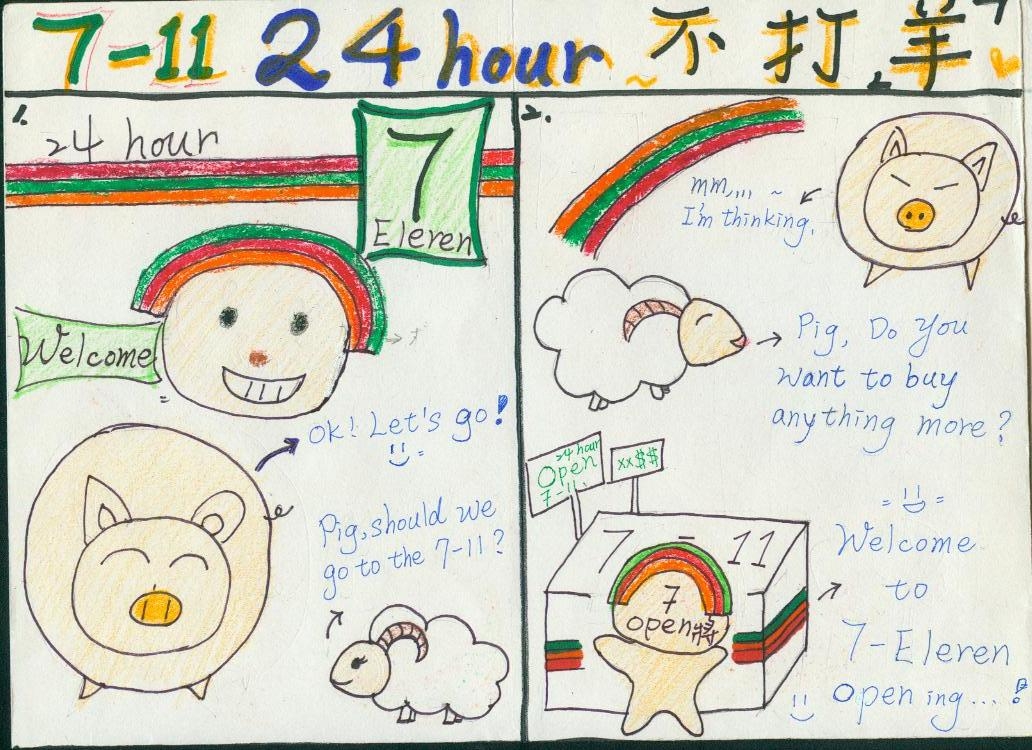 7-11 24 hour 不打羊
1.
24 hour
7
Eleren
Welcome
ok! Let's go!
Pig, should we
go to the 7-11?
2.
mm,,,, ~
I'm thinking.
Pig, Do you
want to buy
anything more?
24 hour
Open
7-11.
xx$$
7-11
7
open將
Welcome
to
7-Eleren
Opening...!